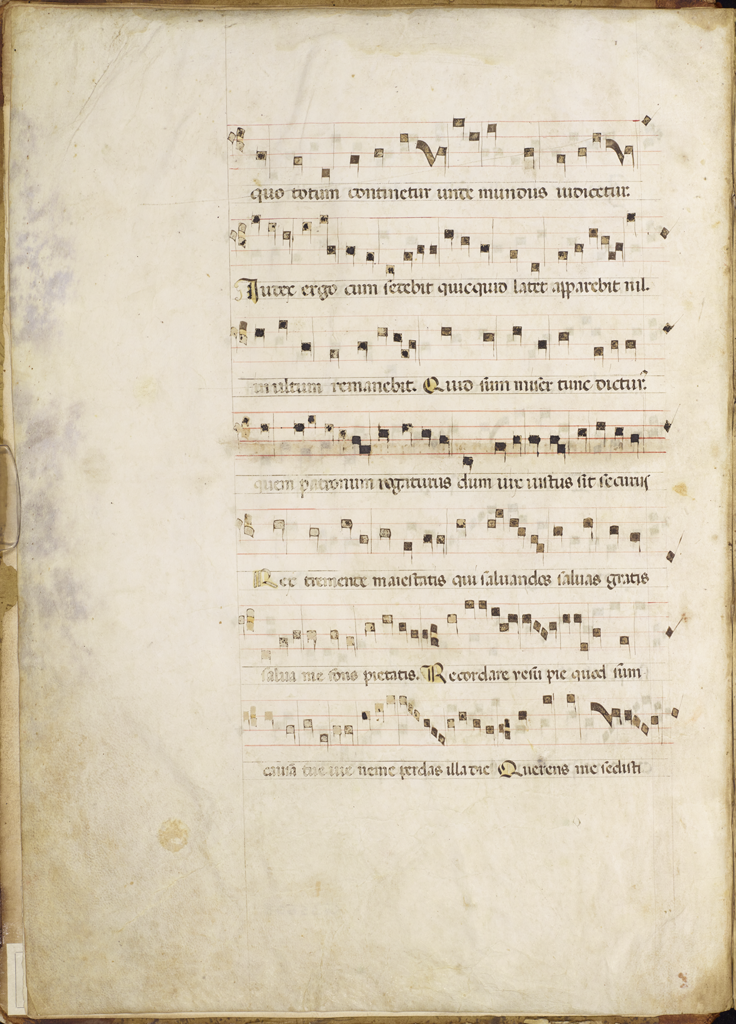 quo totum continetur unde mundus iudicetur.
Iudex ergo cum sedebit quicquid latet apparebit nil.
in ultum remanebit. Quid sum miser tunc dictur̃.
quem patronum rogiturus dum vix iustus sit securus
Rex tremende maiestatis qui saluandos saluas gratis
salua me fons pietatis. Recordare yesu pie quod sum
causa tue vie neme perdas illa die Querens me sedisti